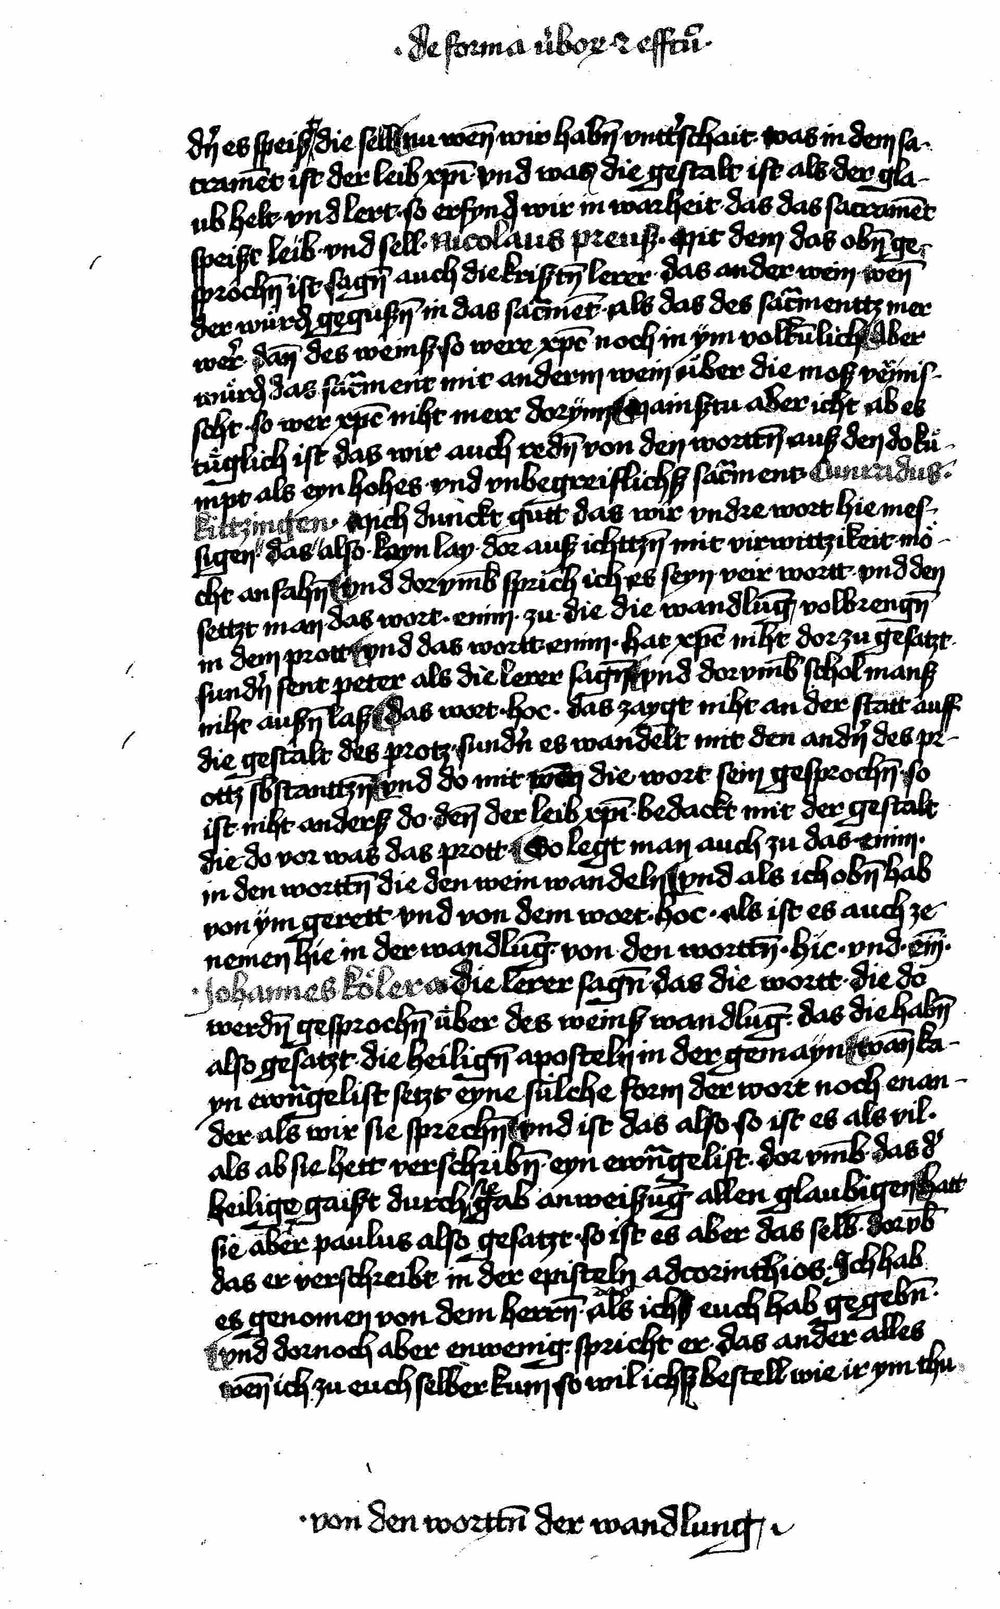 · de forma v̓bor̨ · ⁊ effcū ·
dn̄ es speiſz die sell nu wen̄ wir habn̄ vntt̓schait · was in dem sa-
cramēt ist der leib xp̄i · vnd was die gestalt ist als · der gla-
ub helt · vnd lert · so erfynd wir in warheit · das das sacramēt
speiſzt leib · vnd sell · Nicolaus preuſz · Mit dem das obn̄ ge-
sprochn̄ ist · sagn̄ auch die kriſztn̄ lerer · das ander wein · wen̄
der würd geguſzn̄ in das sacr̄mēt · als das des sacr̄menttz mer
wer̓ dan̄ des weinſz · so were xp̄c noch in ym volkūlich Aber
würd das sacr̄ment mit anderm wein über die moſz vermis-
scht · so wer xp̄c niht merr dorynn Mainſztu aber icht ab es
tüglich ist das wir auch redn̄ von den worttn̄ auſz den do kü-
mpt als eyn hohes · vnd vnbegreiflichſz sacr̄ment · Cunradus ·
kiltzingen · Mich dunckt gutt das wir vndre wort hie mes-
sigen das also kayn lay · dor auſz ichttzn̄ mit virwittzikeit mö-
cht anfahn̄ vnd dorvmb̄ sprich ich es seyn veir wortt · vnd den
settzt man das wort · enim · zu · die die wandlūg volbrengn̄
in dem prott vnd das wortt · enim · hat xp̄c niht dor zu gesatzt ·
sundn̓ sent peter als die lerer sagn̄ vnd dorvmb̄ schol manſz
niht auſzn̄ laſz das wort · hoc · das zaygt niht an der statt auff
die gestalt des protz · sundn̓ es wandelt mit den andn̓ des pr-
ottz sbstanttzn̄ vnd do mit wen̄ die wort sein gesprochn̄ so
ist niht anderſz do · den̄ der leib xp̄i · bedackt mit der gestalt
die do vor was das prott · So legt man auch zu das · enim ·
in den worttn̄ die den wein wandeln vnd als ich obn̄ hab
von ym gerett · vnd von dem wort · hoc · als ist es auch ze
nemen hie in der wandlūg · von den worttn̄ · hic · vnd · em̄ ·
· Johannes köler · die lerer sagn̄ das die wortt · die do
werdn̄ gesprochn̄ über des weinſz wandlūg · das die habn̄
also gesatzt · die heilign̄ aposteln in der gemayn wan̄ ka-
yn ewn̄gelist setzt eyne sülche form der wort noch enan-
der als wir sie sprechn̄ vnd ist das also · so ist es als vil ·
als ab sie hett verschribn̄ · eyn ewn̄gelist · dor vmb̄ · das d̓
heilige gaiſzt durch gab anweiſzūg allen glaubigen hatt
sie aber paulus also gesatzt · so ist es aber das selb · dorvb̄
das er verschreibt in der episteln ad corinthios · Ich hab
es genomen von dem herrn̄ · als ichſz euch hab gegebn̄ ·
vnd dornoch aber enwenig · spricht er · das ander alles
wen̄ ich zu euch selber kum so wil ichſz bestell wie ir ym thu
· von den worttn̄ der wandlung ·